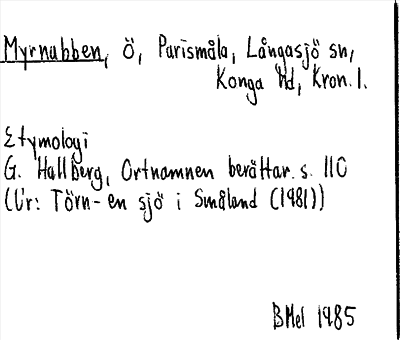 Myrnabben, ö, Parismåla, Långasjö sn,
Konga hd, Kron. l.
Etymologi
G. Hallberg, Ortnamnen berättar. s. 110
(Ur: Törn- en sjö i Småland (1981))
BMel 1985